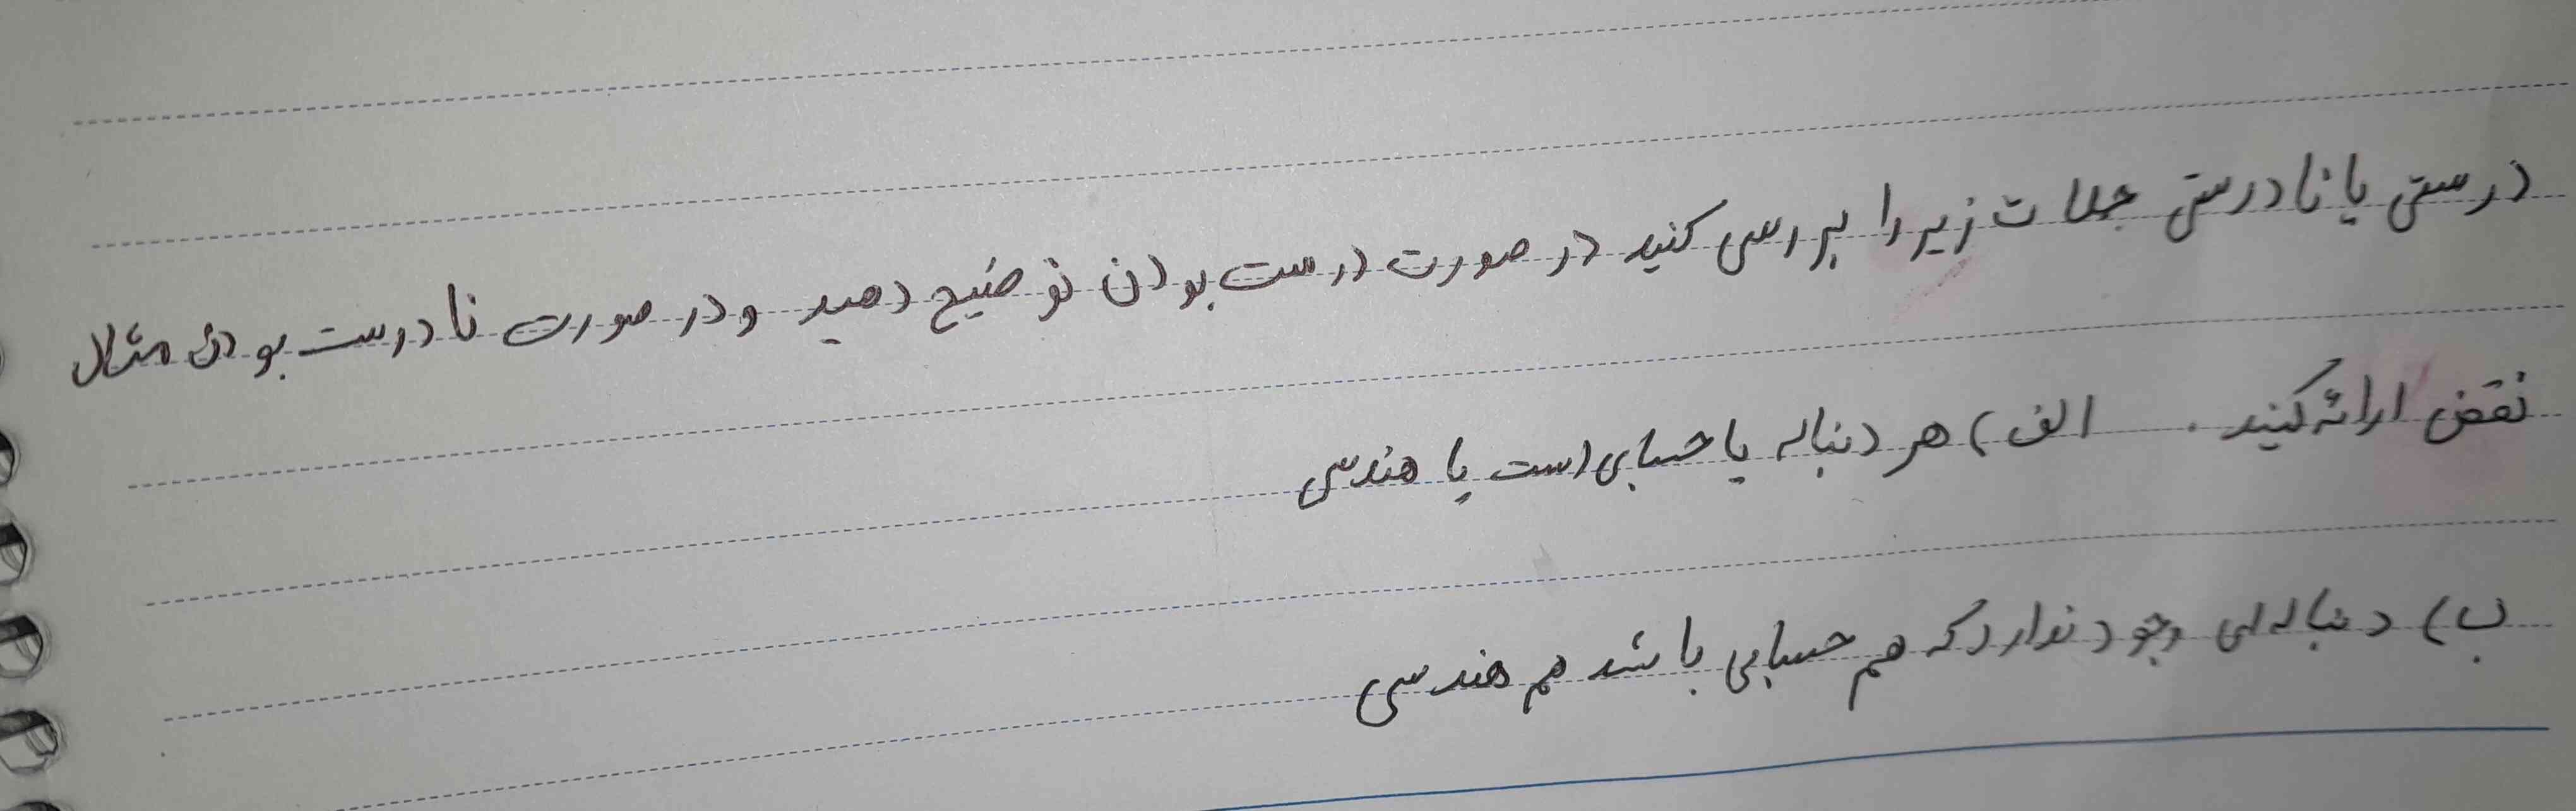 درستی یا نادرستی جملات زیر را بررسی کنید در صورت درست بودن توضیح دهید و در صورت نادرست بودن مثال
نقض ارائه کنید. الف) هر دنباله یا حسابی است یا هندسی
ب) دنباله ای وجود ندارد که هم حسابی باشد هم هندسی